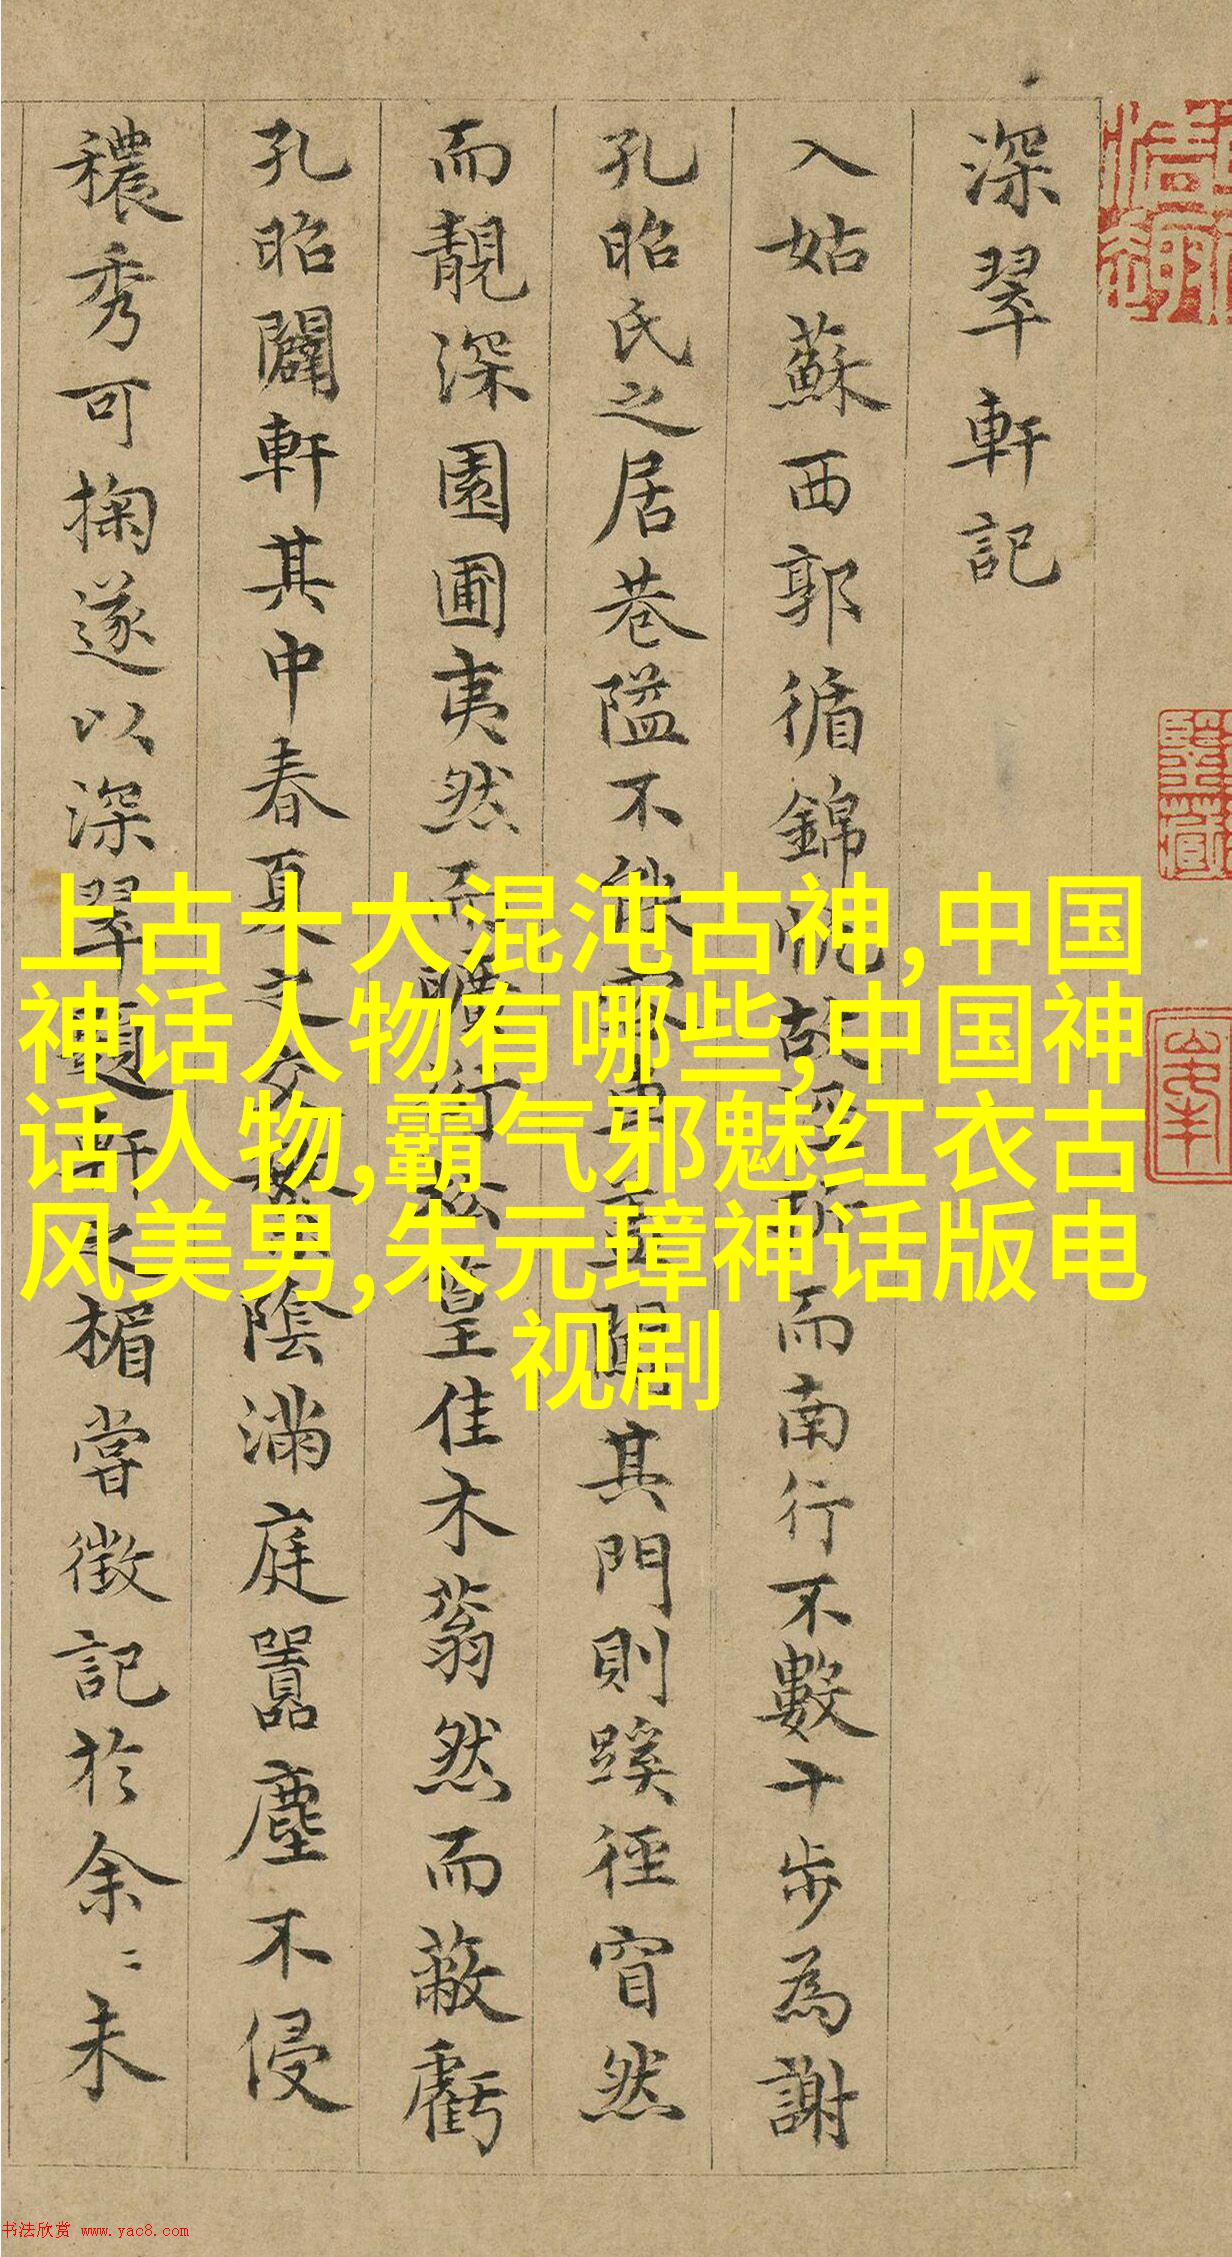 深翠軒記
入姑蘇西郭循錦帆故而南行不數十步為謝
孔昭氏之居巷隘不能容車其門則蹊徑窅然
而靚深園圃夷然而曠衍松篁佳木蓊然而蔽虧
孔昭闢軒其中春夏之交陰滿庭囂塵不侵
穠秀可掬遂以深翠題軒之楣嘗徵記於余〻未
上古十大混沌古神,中国
神话人物有哪些,中国神
话人物,霸气邪魅红衣古
风美男,朱元璋神话版电
视剧
书法欣赏 www.yac8.com